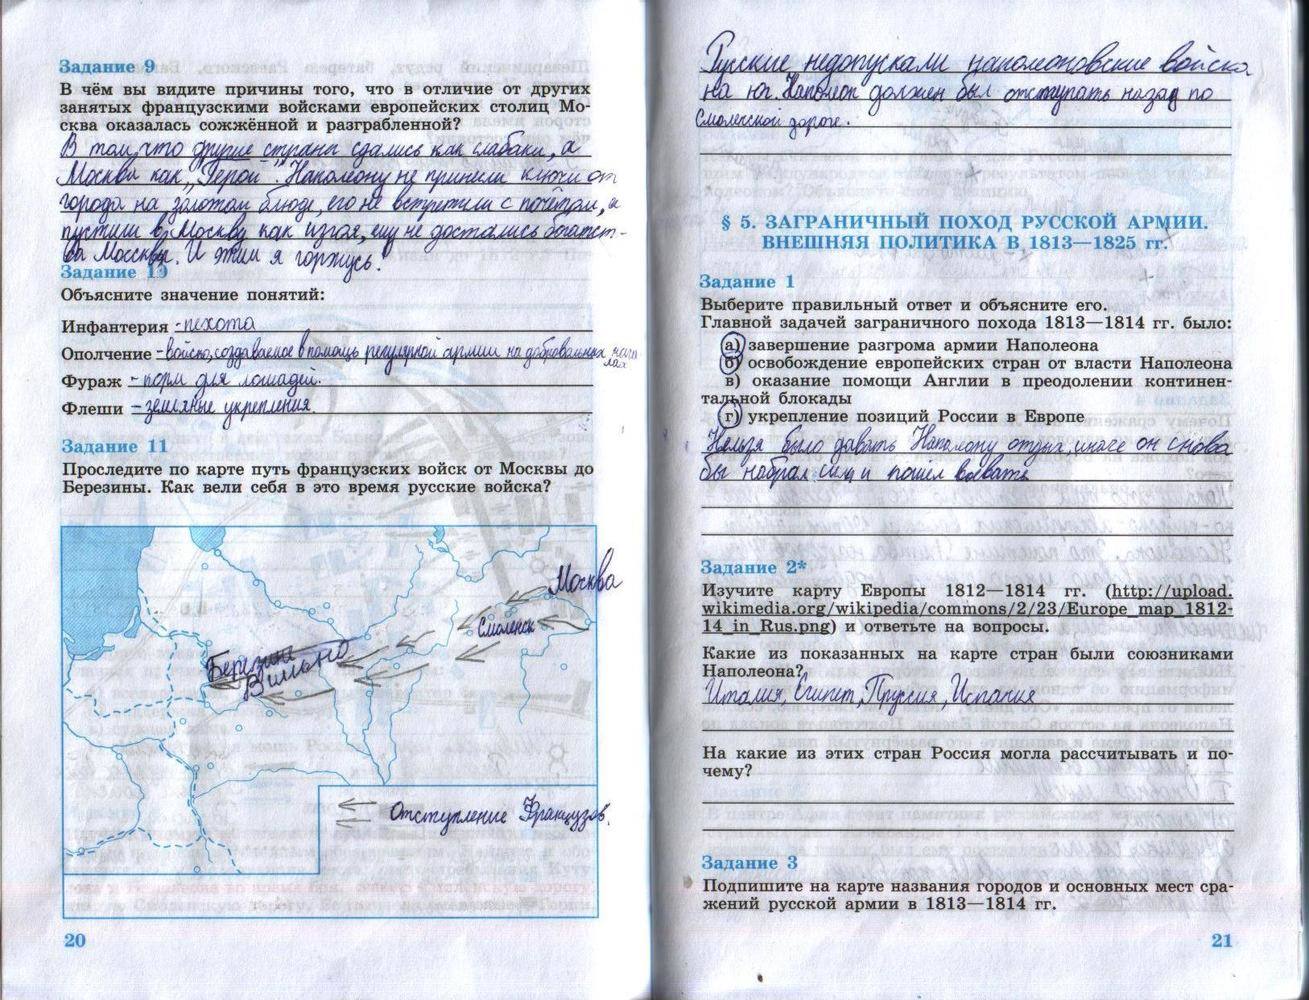 Задание 9
В чём вы видите причины того, что в отличие от других
занятых французскими войсками европейских столиц Мо-
сква оказалась сожжённой и разграбленной?
В том, что другие страны сдались как слабаки, а
Москва как „Герой". Наполеону не принесли ключи от
города на золотом блюде, его не встретили с почётом, а
пустили в Москву как изгоя, ему не достались богатст-
ва Москвы. И этим я горжусь!
Задание 10
Объясните значение понятий:
Инфантерия -пехота
Ополчение -войско, создаваемое в помощь регулярной армии на добровольных нача-
лах
Фураж -корм для лошадей.
Флеши -земляные укрепления.
Задание 11
Проследите по карте путь французских войск от Москвы до
Березины. Как вели себя в это время русские войска?
Москва
Смоленск
Березина
Вильно
Отступление Французов.
20
Русские недопускали наполеоновские войска
на юг. Наполеон должен был отступать назад по
Смоленской дороге.
§ 5. ЗАГРАНИЧНЫЙ ПОХОД РУССКОЙ АРМИИ.
ВНЕШНЯЯ ПОЛИТИКА В 1813—1825 гг.
Задание 1
Выберите правильный ответ и объясните его.
Главной задачей заграничного похода 1813—1814 гг. было:
а) завершение разгрома армии Наполеона
б) освобождение европейских стран от власти Наполеона
в) оказание помощи Англии в преодолении континен-
тальной блокады
г) укрепление позиций России в Европе
Нельзя было давать Наполеону отдых, иначе он снова
бы набрал силы и пошёл воевать
Задание 2*
Изучите карту Европы 1812—1814 гг. (http://upload.
wikimedia.org/wikipedia/commons/2/23/Europe_map_1812-
14_in_Rus.png) и ответьте на вопросы.
Какие из показанных на карте стран были союзниками
Наполеона?
Италия, Египет, Пруссия, Испания
На какие из этих стран Россия могла рассчитывать и по-
чему?
Задание 3
Подпишите на карте названия городов и основных мест сра-
жений русской армии в 1813—1814 гг.
21